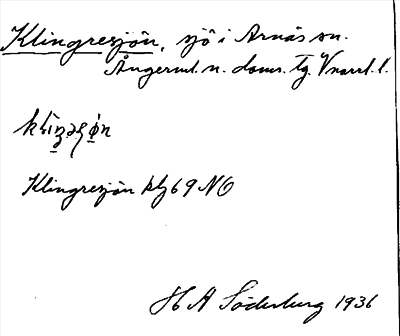 Klingresjön, sjö i Arnäs sn.
Ångerml. n. doms. tg. Vnorrl. l.
Klingresjön bl 69 NO
H A Söderberg 1936